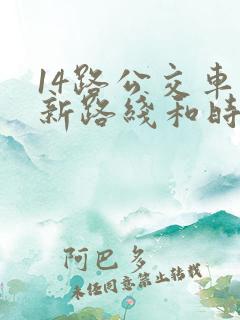 14路公交车
新路线和时
阿巴多
未经同意禁止转载